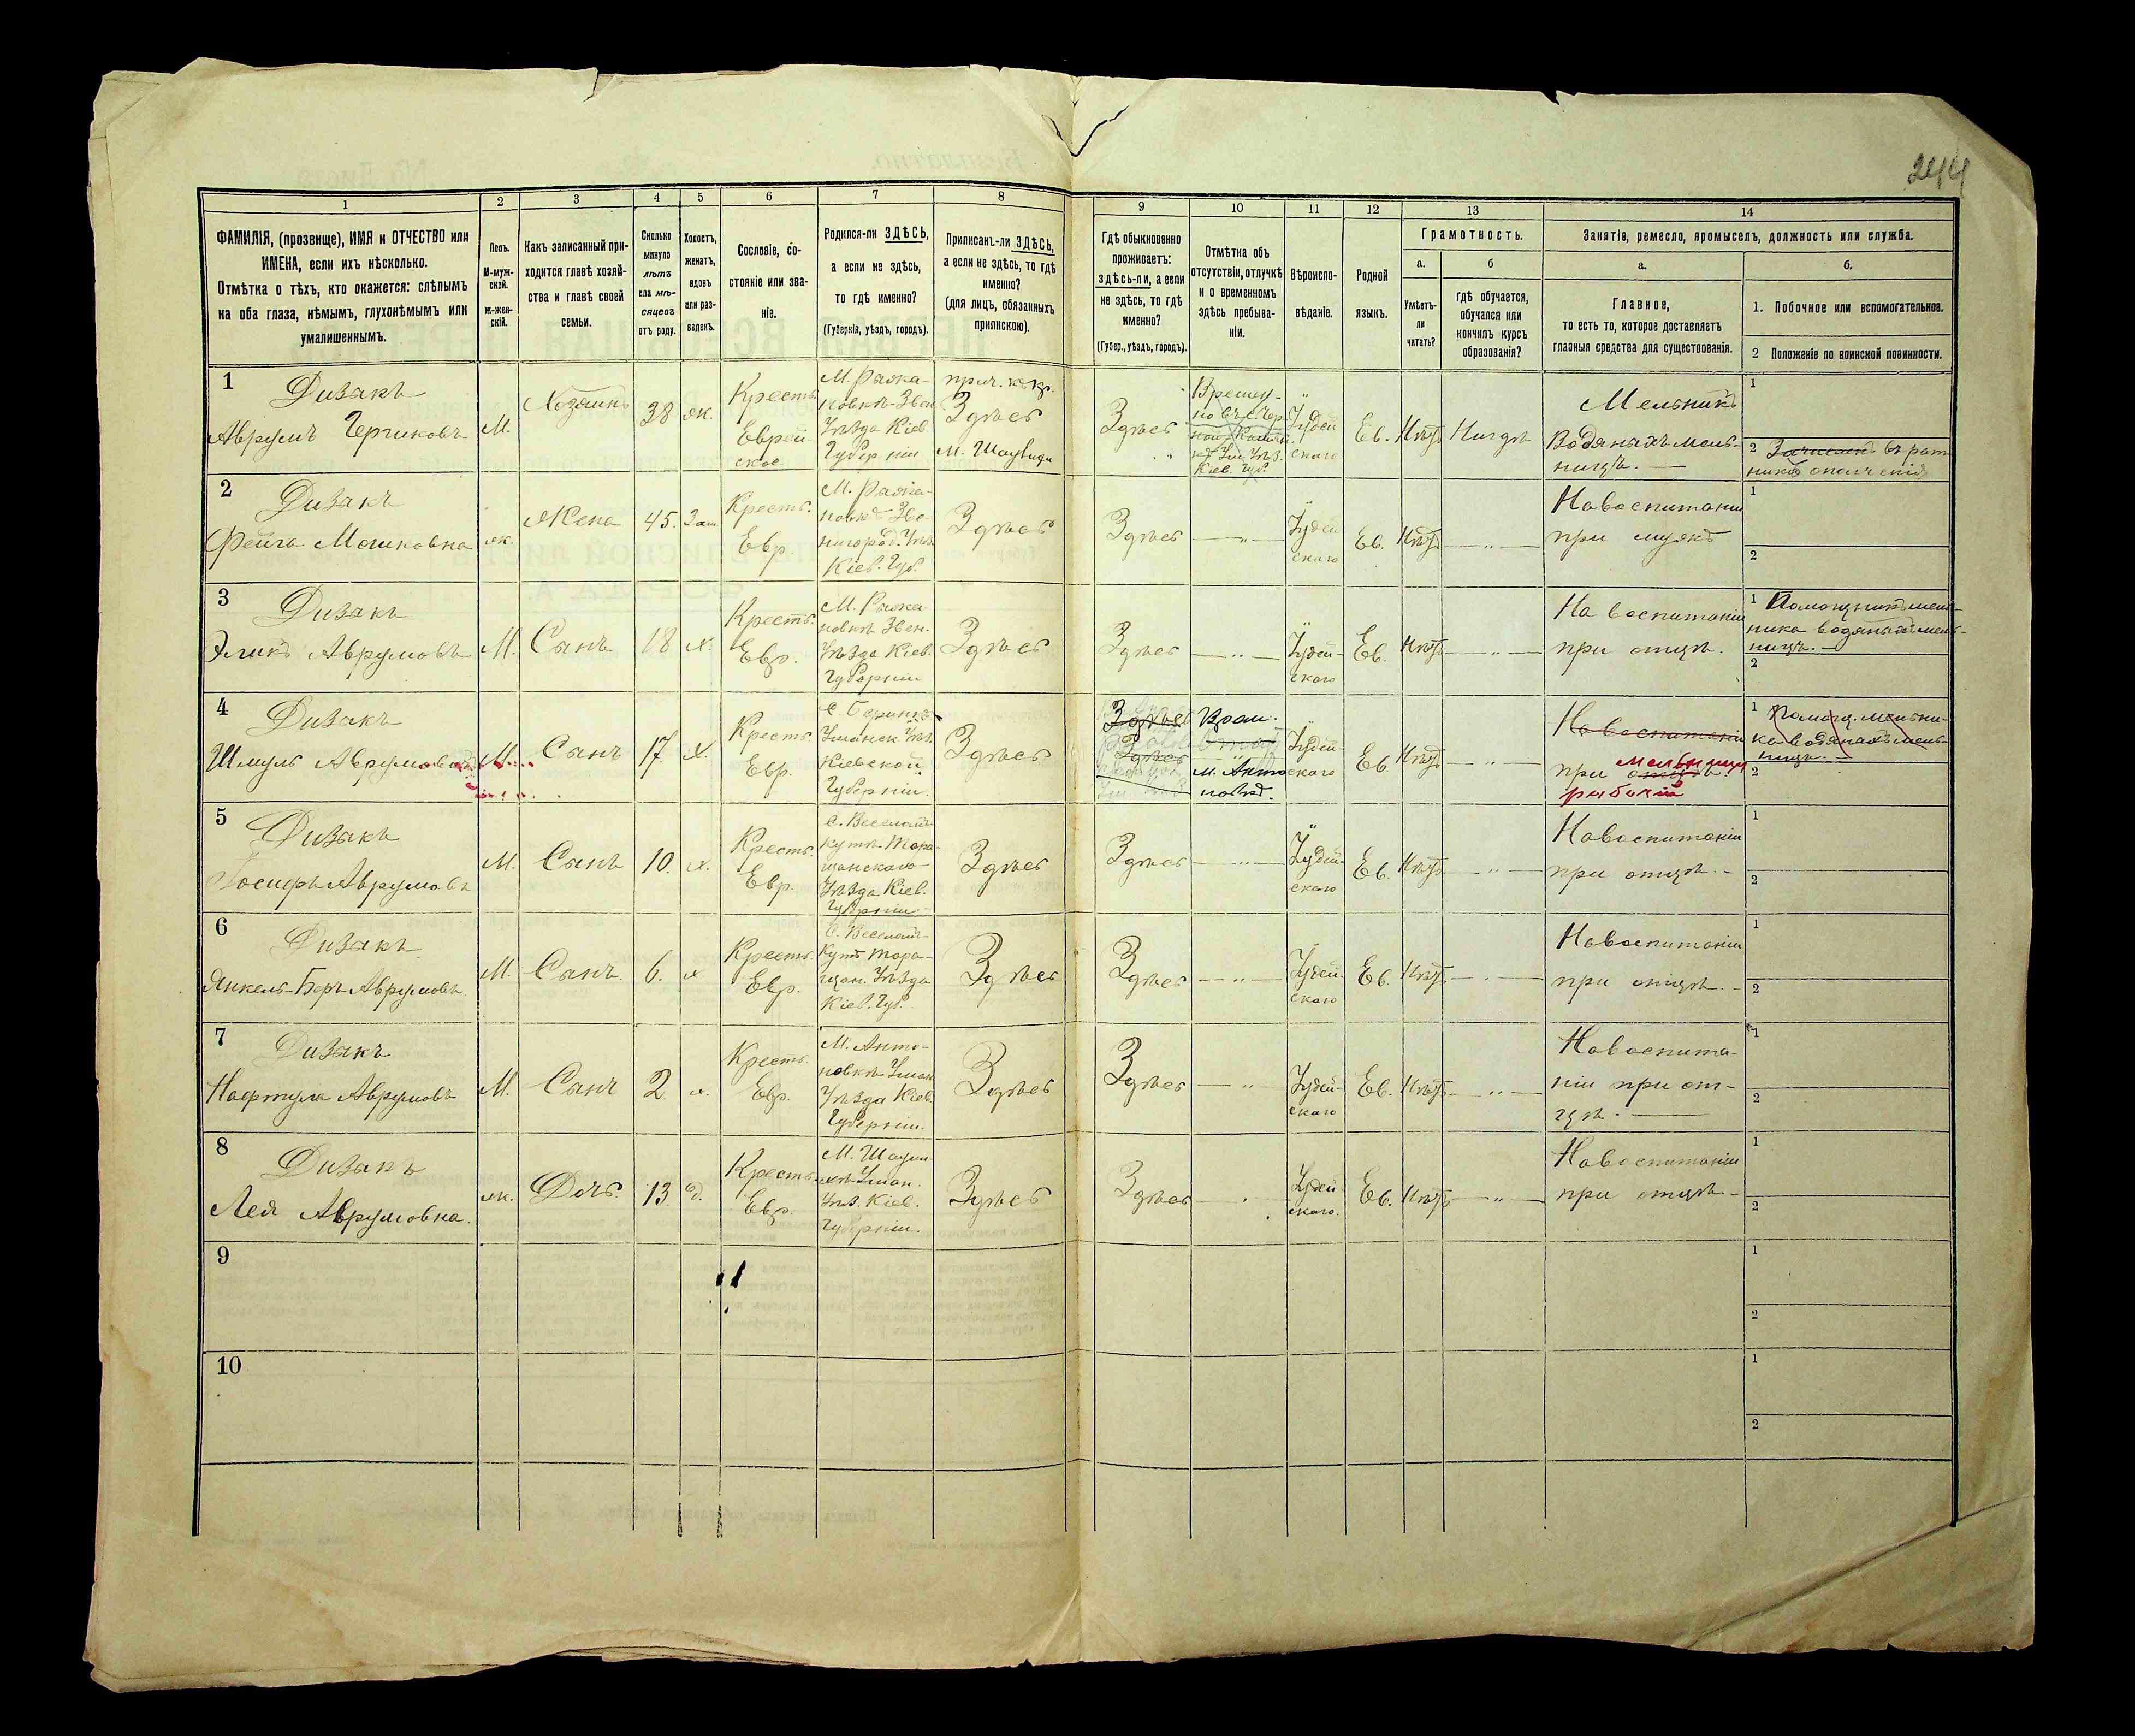 244
1
2
3
4
5
6
7
8
9
10
11
12
13
14
ФАМИЛІЯ, (прозвище), ИМЯ и ОТЧЕСТВО или
ИМЕНА, если ихъ нѣсколько.
Отмѣтка о тѣхъ, кто окажется: слѣпымъ
на оба глаза, нѣмымъ, глухонѣмымъ или
умалишеннымъ.
Полъ.
М-муж-
ской.
ж-жен-
скій.
Какъ записанный при-
ходится главѣ хозяй-
ства и главѣ своей
семьи.
Сколько
минуло
лѣтъ
или мѣ-
сяцевъ
отъ роду.
Холостъ,
женатъ,
вдовъ
или раз-
веденъ.
Сословіе, со-
стояніе или зва-
ніе.
Родился-ли ЗДѢСЬ,
а если не здѣсь,
то гдѣ именно?
(Губернія, уѣздъ, городъ).
Приписанъ-ли ЗДѢСЬ,
а если не здѣсь, то гдѣ
именно?
(для лицъ, обязанныхъ
припискою).
Гдѣ обыкновенно
проживаетъ:
здѣсь-ли, а если
не здѣсь, то гдѣ
именно?
(Губер., уѣздъ, городъ).
Отмѣтка объ
отсутствіи, отлучкѣ
и о временномъ
здѣсь пребыва-
ніи.
Вѣроиспо-
вѣданіе.
Родной
языкъ.
Грамотность.
а.
Умѣетъ-
ли
читать?
б
Гдѣ обучается,
обучался или
кончилъ курсъ
образованія?
Занятіе, ремесло, промыселъ, должность или служба.
а.
Главное,
то есть то, которое доставляетъ
главныя средства для существованія.
б.
1. Побочное или вспомогательное.
2 Положеніе по воинской повинности.
1
Дизакъ
Аврумъ
М.
Хозяинъ
38
ж.
Крестъ.
Еврей-
ское
М. Рыжа-
новкѣ Звен
Уѣзда Кіев.
Губерніи
Здѣсь
Здѣсь
Іудей
скаго
Ев.
Нѣтъ
Нигдѣ
Мельникъ
Водяныхъ мель-
ницъ.
1
2 Зачисленъ въ рат
никъ ополченія
2
Дизакъ
Фейга Мошковна
ж.
Жена
45.
Зам.
Крестъ.
Евр.
М. Рыжа-
новкѣ Зве-
нигород. Уѣз.
Кіев. Губ.
Здѣсь
Здѣсь
— „ —
Іудей
скаго
Ев.
Нѣтъ
— „ —
На воспитаніи
при мужѣ
1
2
3
Дизакъ
Эликъ Аврумовъ
М.
Сынъ
18
х.
Крестъ.
Евр.
М. Рыжа
новкѣ Звен.
Уѣзда Кіев.
Губерніи
Здѣсь
Здѣсь
— „ —
Іудей-
скаго
Ев.
Нѣтъ
— „ —
На воспитаніи
при отцѣ.
1 Помощникъ мель-
ника водяныхъ мель-
ницъ.
2
4
Дизакъ
Шмуль Аврумовъ
М.
Сынъ
17
х.
Крестъ.
Евр.
Уманск Уѣз.
Кіевской
Губерніи.
Здѣсь
Здѣсь
Здѣсь
м. Анто
новкѣ.
Іудей-
скаго
Ев.
Нѣтъ
— „ —
На воспитаніи
при отцѣ.
рабочій
1 Помощ. мельни-
ка водяныхъ мель-
ницъ.
2
5
Дизакъ
Іосифъ Аврумовъ
М.
Сынъ
10.
х.
Крестъ.
Евр.
Кутѣ Тара-
щанскаго
Уѣзда Кіев.
Губерніи
Здѣсь
Здѣсь
— „ —
Іудей-
скаго
Ев.
Нѣтъ
— „ —
На воспитаніи
при отцѣ.
1
2
6
Дизакъ
Янкель-Беръ Аврумовъ
М.
Сынъ
6.
х
Крестъ.
Евр.
Кутѣ Тара-
щан. Уѣзда
Кіев. Губ.
Здѣсь
Здѣсь
— „ —
Іудей-
скаго
Ев.
Нѣтъ
— „ —
На воспитаніи
при отцѣ.
1
2
7
Дизакъ
Нафтула Аврумовъ
М.
Сынъ
2
х.
Крестъ.
Евр.
М. Анто-
новкѣ Уман
Уѣзда Кіев.
Губерніи.
Здѣсь
Здѣсь
— „
Іудей-
скаго
Ев.
Нѣтъ
— „ —
На воспита-
ніи при от-
цѣ.
1
2
8
Дизакъ
Лея Аврумовна.
ж.
Дочь.
13
д.
Крестъ.
Евр.
Уѣз. Кіев.
Губерніи.
Здѣсь
Здѣсь
Іудей
скаго.
Ев.
Нѣтъ
— „ —
На воспитаніи
при отцѣ
1
2
9
1
2
10
1
2